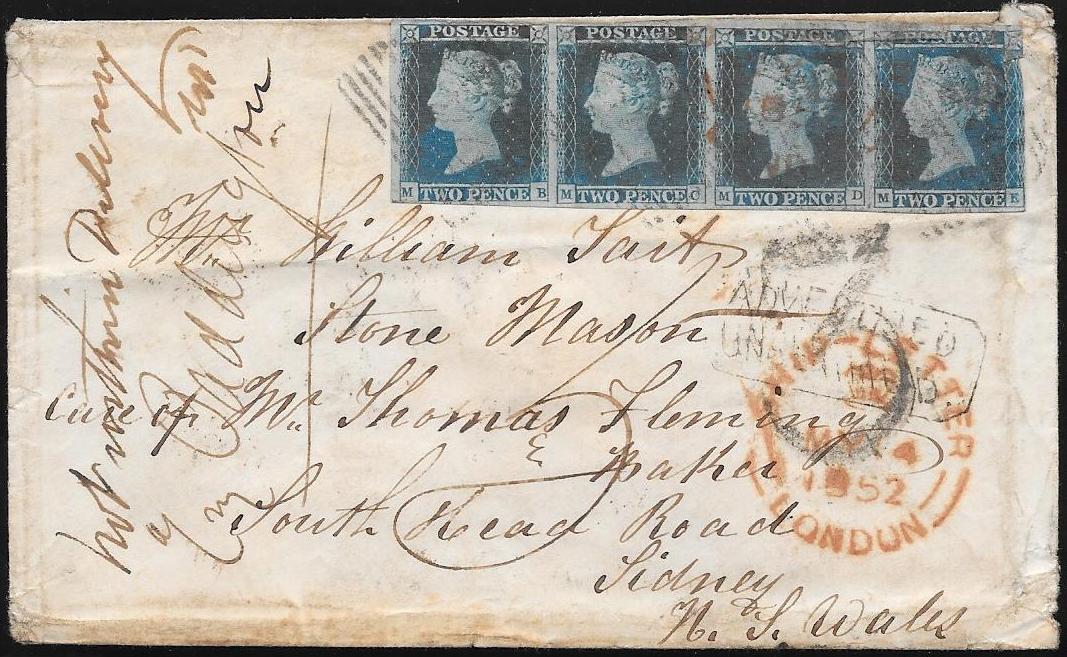 POSTAGE POSTAGE POSTAGE POSTAGE
M TWO PENCE B M TWO PENCE C M TWO PENCE D M TWO PENCE E
Mr. William Tait
Stone Mason
care of Mr. Thomas Fleming
Baker
South Head Road
Sidney
N. S. Wales
ADVERTISED
UNCLAIMED
SHIP-LETTER
4
1852
LONDON
Not
Delivery
Paddington